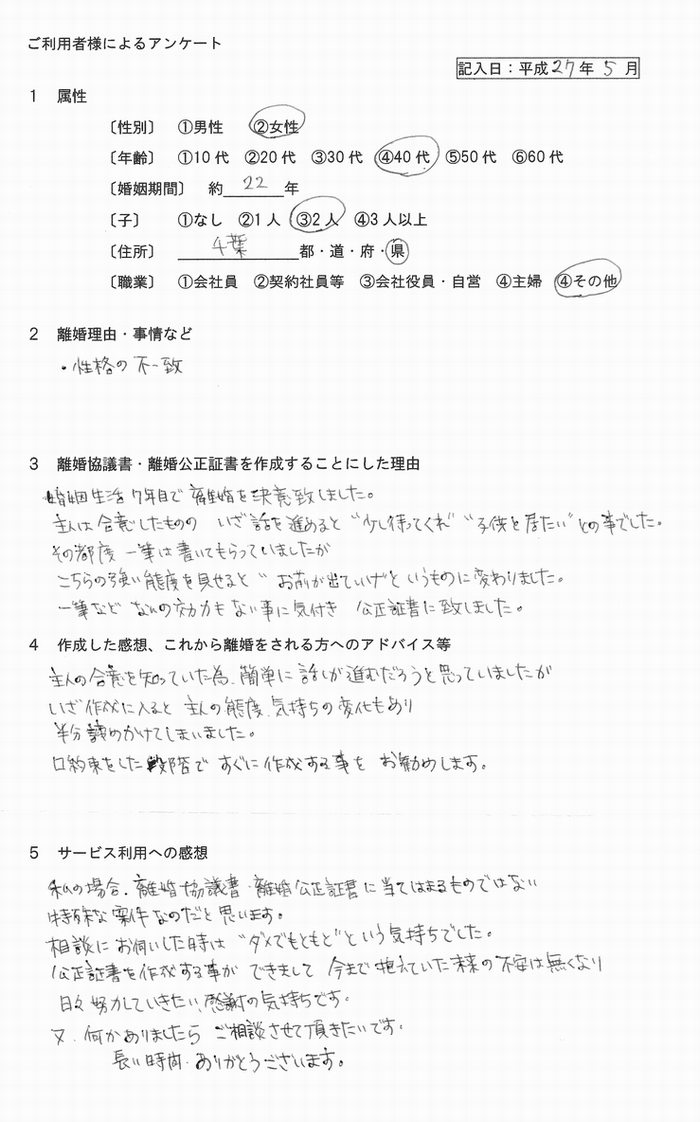 ご利用者様によるアンケート
記入日：平成27年 5月
1 属性
〔性別〕 ①男性 ②女性
〔年齢〕 ①10代 ②20代 ③30代 ④40代 ⑤50代 ⑥60代
〔婚姻期間〕 約 22 年
〔子〕 ①なし ②1人 ③2人 ④3人以上
〔住所〕 千葉 都・道・府・県
〔職業〕 ①会社員 ②契約社員等 ③会社役員・自営 ④主婦 ④その他
2 離婚理由・事情など
・性格の不一致
3 離婚協議書・離婚公正証書を作成することにした理由
婚姻生活7年目で離婚を決意致しました。
主人は合意したものの いざ話を進めると"少し待ってくれ" "子供を居たい"との事でした。
その都度 一筆は書いてもらっていましたが
こちらの強い態度を見せると" お前が出ていけ"というものに変わりました。
一筆など なんの効力もない事に気付き 公正証書に致しました。
4 作成した感想、これから離婚をされる方へのアドバイス等
主人の合意を知っていた為、簡単に話しが進むだろうと思っていましたが
いざ作成に入ると 主人の態度、気持ちの変化もあり
半分諦めかけてしまいました。
口約束をした段階で すぐに作成する事を お勧めします。
5 サービス利用への感想
私の場合、離婚協議書・離婚公正証書に当てはまるものではない
特殊な案件なのだと思います。
相談にお伺いした時は"ダメでもともと"という気持ちでした。
公正証書を作成する事が できまして 今まで抱えていた未来の不安は無くなり
日々努力していきたい、感謝の気持ちです。
又、何かありましたら ご相談させて頂きたいです。
長い時間、ありがとうございます。